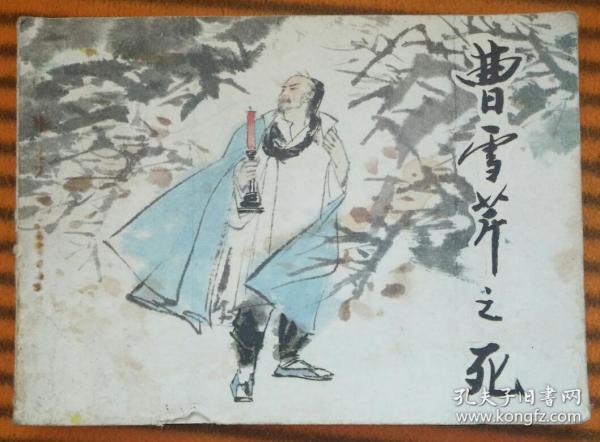 曹雪芹之死
孔夫子旧书网
www.kongfz.com